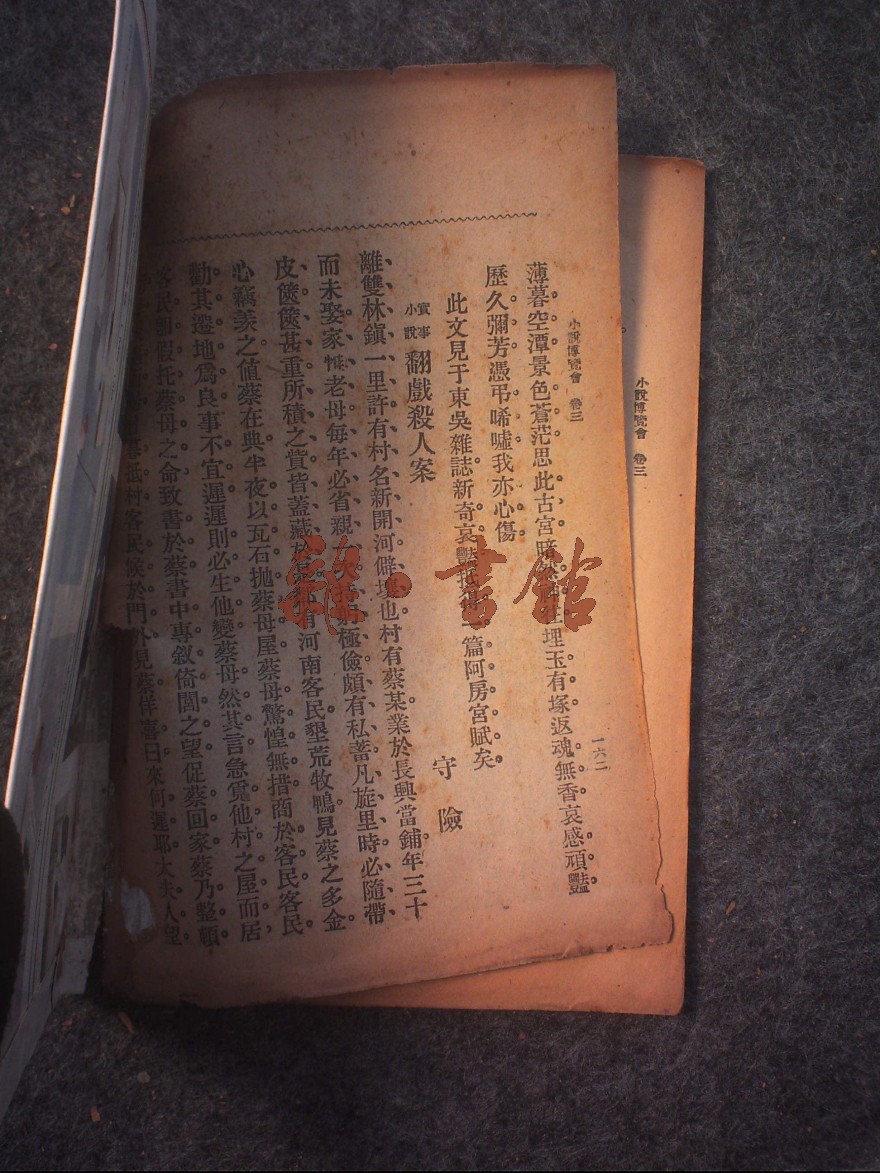 小說博覽會 卷三
一六二
薄暮空潭景色蒼茫思此古宮埋玉有塚返魂無香哀感頑豔。
歷久彌芳憑弔唏噓我亦心傷。
此文見于東吳雜誌新奇哀豔抵篇阿房宮賦矣。
實事小說 翻戲殺人案
守險
離雙林鎮一里許有村名新開河僻壤也村有蔡某業於長興當鋪年三十
而未娶家惟老母每年必省親一次極儉頗有私蓄凡旋里時必隨帶
皮篋篋甚重所積之貲皆蓋藏於有河南客民墾荒牧鴨見蔡之多金
心竊羨之値蔡在典半夜以瓦石拋蔡母屋蔡母驚惶無措商於客民客民
勸其遷地爲良事不宜遲遲則必生他變蔡母然其言急覓他村之屋而居
客民則假托蔡母之命致書於蔡書中專叙倚閭之望促蔡回家蔡乃整頓
抵村客民候於門外見蔡佯喜曰來何遲耶太夫人望
小說博覽會 卷三
雜·書館